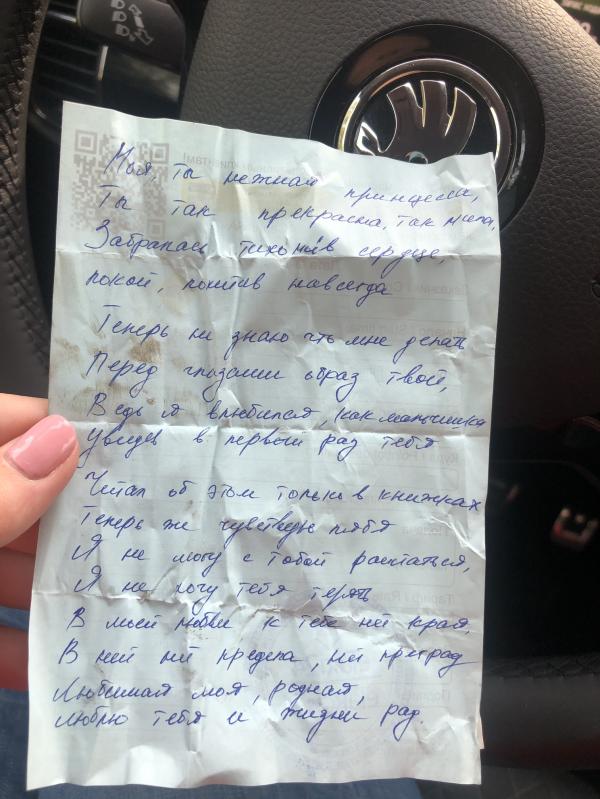 Моя, ты нежная принцесса,
Ты так прекрасна, так мила,
Забралась тихонько в сердце,
покой, похитив навсегда
Теперь не знаю что мне делать
Перед глазами образ твой,
Ведь я влюбился, как мальчишка
Увидев в первый раз тебя
Читал об этом только в книжках
Теперь же чувствую любя
Я не могу с тобой расстаться,
Я не хочу тебя терять
В моей любви к тебе нет края,
В ней нет предела, нет преград
Любимая моя, родная,
Люблю тебя и жизни рад.